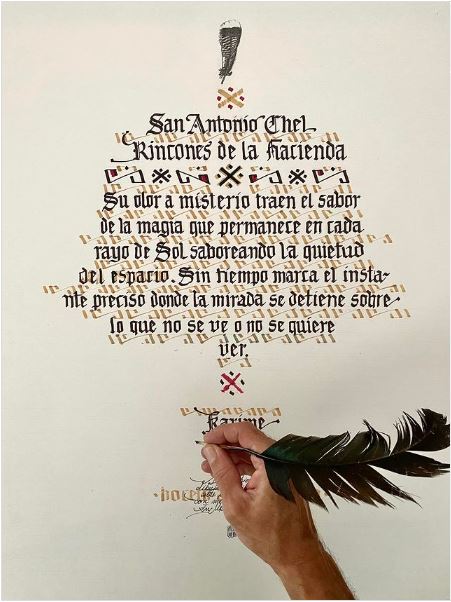 San Antonio Chel
Rincones de la Hacienda
Su olor a misterio traen el sabor
de la magia que permanece en cada
rayo de Sol saboreando la quietud
del espacio. Sin tiempo marca el insta-
nte preciso donde la mirada se detiene sobre
lo que no se ve o no se quiere
ver.
Karime